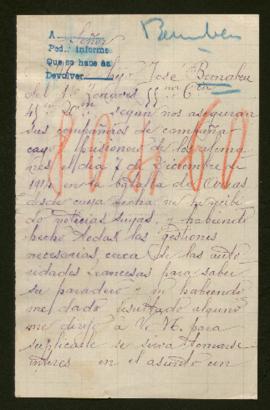 Bernabeu
A
Ped.: informe
Que se hace ás
Devolver
Señor
hijo José Bernabeu
del 1er Zouaves
según nos aseguran
sus compañeros de compañía
cayó prisionero de los alema
nes el día 7 de Diciembre de
1914 en la batalla de
desde cuya fecha no
noticias suyas, y habiendo
hecho todas las gestiones
necesarias cerca de las auto
ridades francesas para saber
su paradero y no habiendo
me dado resultado alguno
me dirijo á V. M. para
suplicarle se sirva tomarse
interés en el asunto en